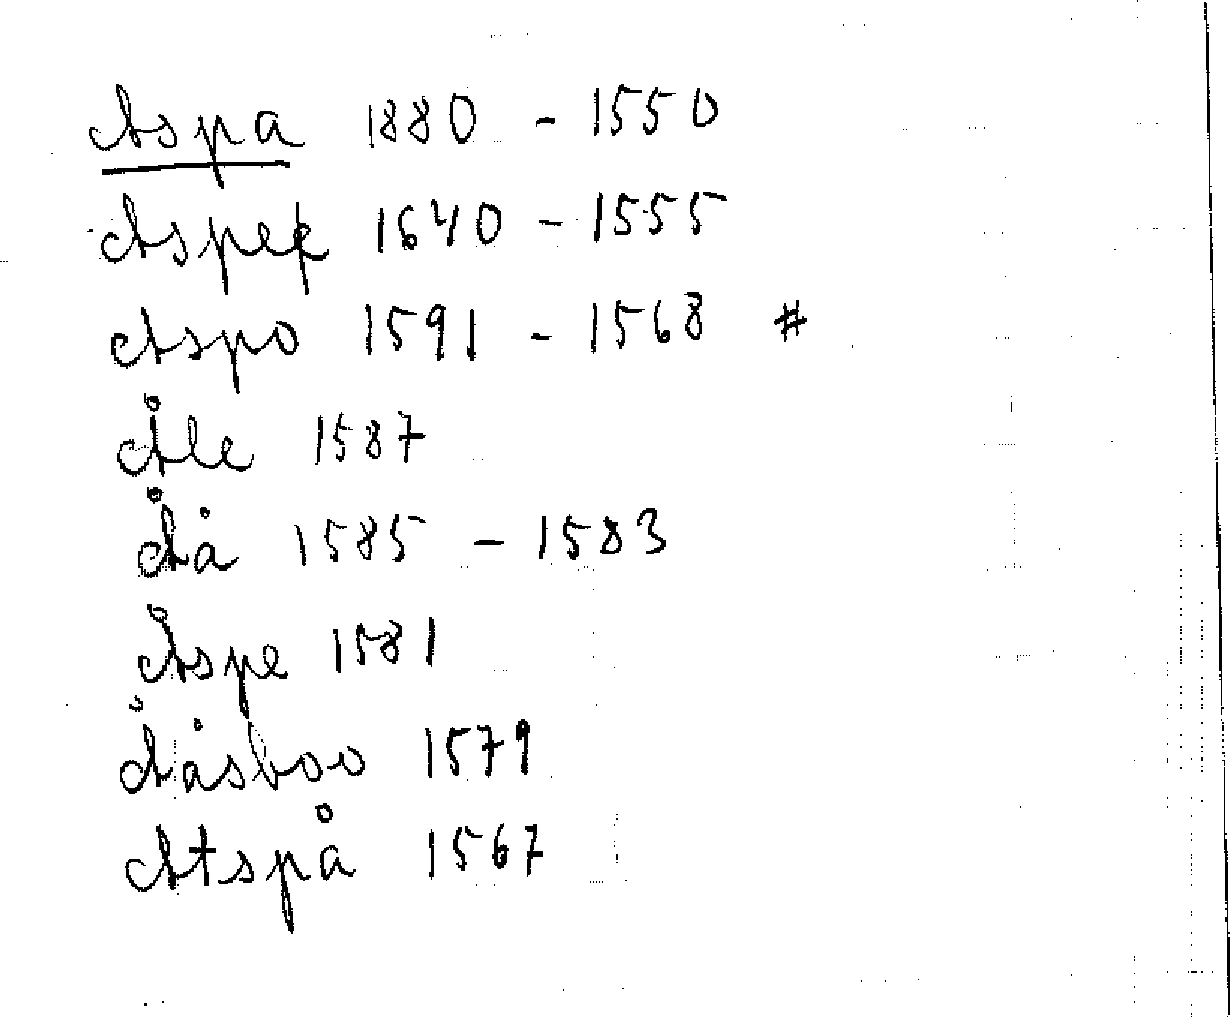 Aspa 1880 - 1550
Aspeę 1640 - 1555
Aspo 1591 - 1568 #
Åle 1587
Åå 1585 - 1583
Åspe 1581
Ååsboo 1579
Atspå 1567